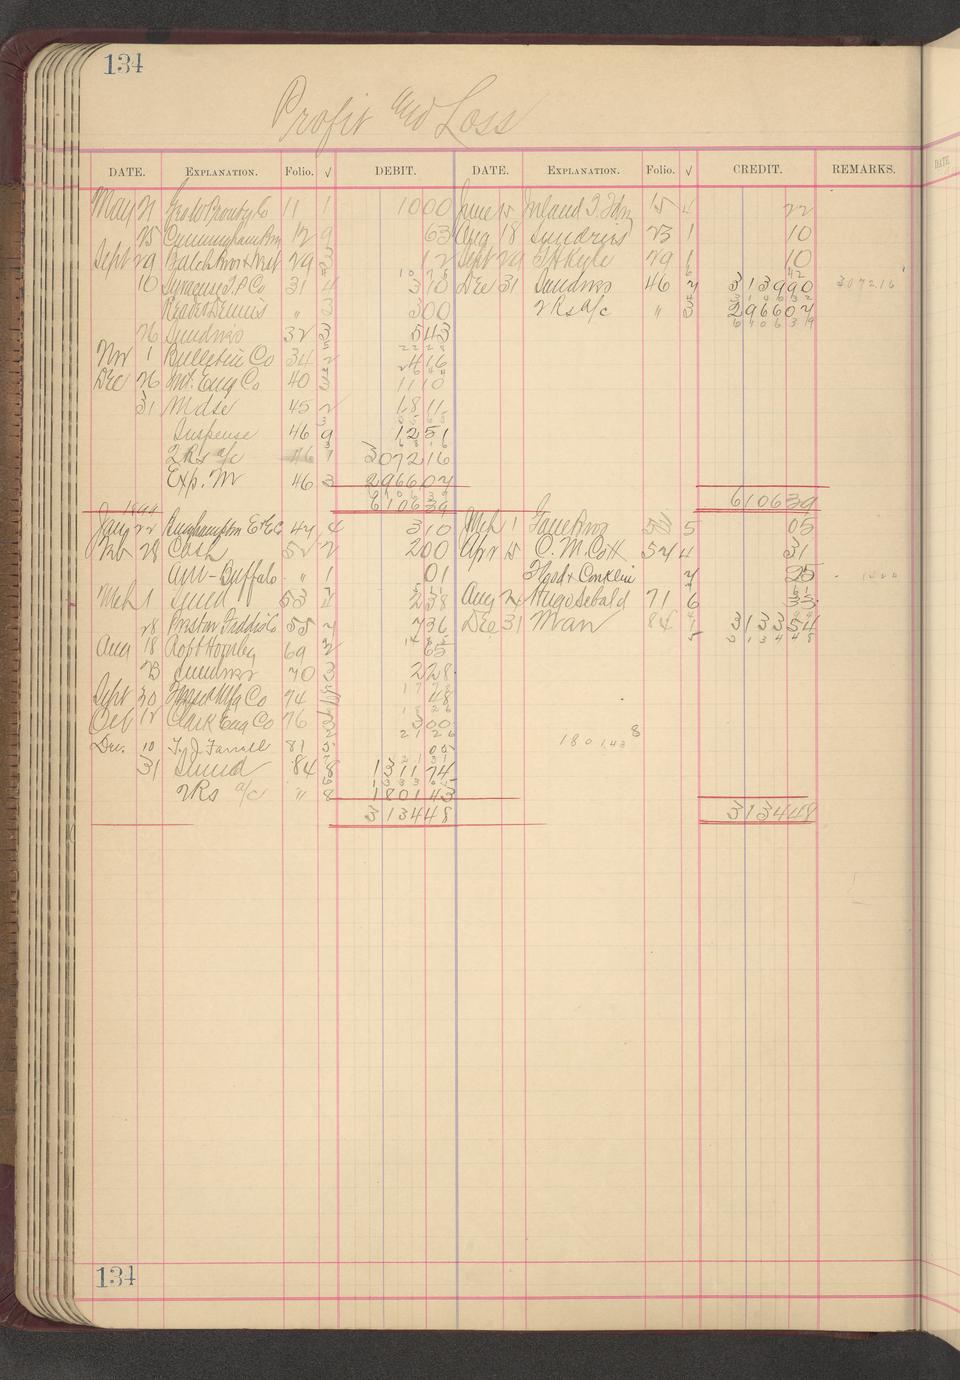 134
Profit and Loss
DATE. EXPLANATION. Folio. √ DEBIT. DATE. EXPLANATION. Folio. √ CREDIT. REMARKS.
May 21 Geo W Prouty Co 11 1 1000 June 15 Inland T. Fdry 15 4 22
25 Cunningham Bros 12 9 63 Aug 18 Sundries 23 1 10
Sept 29 Balch Bros & West 29 3 12 Sept 29 79 1 10
10 Syracuse T. P. Co 31 4 310 Dec 31 Sundries 46 2 313990 307216
Dennis " 3 300 2Rs a/c " 3 296602
26 Sundries 32 3 543
Nov 1 Bulletin Co 34 2 416
Dec 26 Int. Eng Co 40 3 1110
31 Mdse 45 2 1811
Suspense 46 9 1251
2Rs a/c 46 1 307216
Exp. 46 3 296602
610639 610639
1894
Jany 22 Binghamton E. E. C. 47 4 310 Mch 1 Bros 5 05
Feb 28 Cash 52 2 200 Apr 15 C. M. Cott 54 4 31
Am - Buffalo " 1 01 Hood & Conklin 2 25
Mch 1 53 238 Aug 24 Hugo Sebald 71 6 33
28 55 2 736 Dec 31 84 313354
Aug 18 Robt Hornby 69 2 65
23 Sundries 70 3 228
Sept 20 Mfg Co 74 48
Oct 12 Clark Eng Co 76 300
180143
Dec. 10 T. J. Farrell 81 5 05
31 84 8 131174
2Rs a/c " 8 180143
313448 313448
134